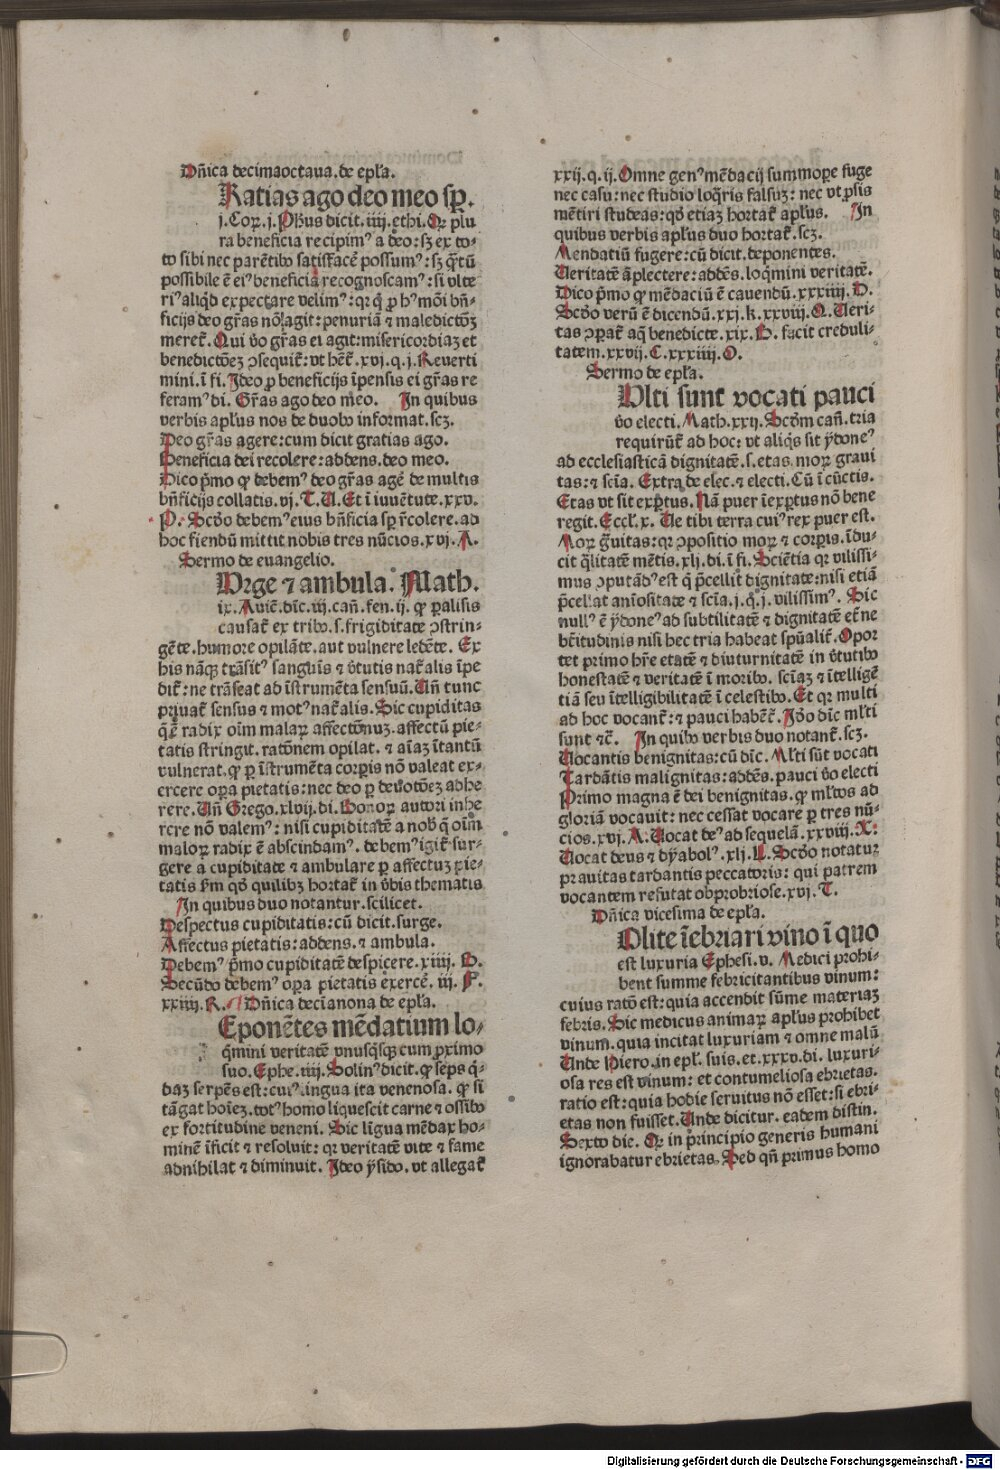 Dñica decimaoctaua. de epła.
Ratias ago deo meo sꝑ.
j. Coꝝ. j. Phūs dicit. iiij. ethi. Qꝛ plu
ra beneficia recipimꝰ a deo: sꝫ ex to-
to sibi nec parētibꝰ satisfacē possumꝰ: sꝫ q̄tū
possibile ē eiꝰ beneficia recognoscamꝰ: si vlte
riꝰ aliqd expectare velimꝰ: qꝛ q̇ ꝑ hꝰmōi bñ-
ficijs deo gr̄as nō agit: penuriā ⁊ maledictōꝫ
meret̄. Qui v̇o gr̄as ei agit: misericordiaꝫ et
benedictōeꝫ ↄsequit̄: vt hēt̄. xvj. q. j. Reuerti
mini. ī fi. Ideo ꝓ beneficijs īpensis ei gr̄as re
feram᷑ di. Gr̄as ago deo meo. In quibus
verbis apłus nos de duobꝰ informat. scꝫ.
Deo gr̄as agere: cum dicit gratias ago.
Beneficia dei recolere: addens. deo meo.
Dico p̄mo ꝙ debemꝰ deo gr̄as agē de multis
bñficijs collatis. vj. T. U. Et ī iuuētute. xxv.
P. Scd̄o debemꝰ eius bñficia sꝑ r̄colere. ad
hoc fiendū mittit nobis tres nūcios. xvj. A.
Sermo de euangelio.
Urge ⁊ ambula. Math.
ix. Auiē. dīc. iij. cañ. fen. ij. ꝙ ꝑalisis
causat̄ ex tribꝰ. s. frigiditate ↄstrin-
gēte. humore opilāte. aut vulnere ledēte. Ex
his nāqꝫ trāsitꝰ sanguīs ⁊ v̇tutis nat̄alis īpe
dit̄: ne trāseat ad īstrumēta sensuū. Uñ tunc
priuat̄ sensus ⁊ motꝰ nat̄alis. Sic cupiditas
q̄ ē radix oīm maloꝝ affectōnuꝫ. affectū pie-
tatis stringit. ratōnem opilat. ⁊ aīaꝫ ītantū
vulnerat. ꝙ ꝑ īstrumēta corꝑis nō valeat ex-
ercere oꝑa pietatis: nec deo ꝑ deuotōeꝫ adhe
rere. Uñ Grego. xlvij. di. Bonoꝝ autori inhe
rere nō valemꝰ: nisi cupiditatē a nob̄ q̄ oīm
maloꝝ radix ē abscindamꝰ. debemꝰ igit̄ sur-
gere a cupiditate ⁊ ambulare ꝑ affectuꝫ pie-
tatis ẜm qd̄ quilibꝫ hortat̄ in v̇bis thematis
In quibus duo notantur. scilicet.
Despectus cupiditatis: cū dicit. surge.
Affectus pietatis: addens. ⁊ ambula.
Debemꝰ p̄mo cupiditatē despicere. xiiij. D.
Secūdo debemꝰ oꝑa pietatis exercē. iij. F.
xxiiij. R. Dñica decīanona de epła.
Eponētes mēdatium lo-
q̄mini veritatē vnusq̄sqꝫ cum proximo
suo. Ephe. iiij. Solinꝰ dicit. ꝙ seps q̄-
daꝫ serpēs est: cuiꝰ lingua ita venenosa. ꝙ si
tāgat hoīeꝫ. totꝰ homo liquescit carne ⁊ ossibꝰ
ex fortitudine veneni. Sic līgua mēdax ho-
minē īficit ⁊ resoluit: qꝛ veritatē vite ⁊ fame
adnihilat ⁊ diminuit. Ideo ysido. vt allegat̄
xxij. q. ij. Omne genꝰ mēdacij summoꝑe fuge
nec casu: nec studio loq̄ris falsuꝫ: nec vt ꝓsis
mētiri studeas: qd̄ etiaꝫ hortat̄ apłus. In
quibus verbis apłus duo hortat̄. scꝫ.
Mendatiū fugere: cū dicit. deponentes.
Ueritatē āplectere: addēs. loq̄mini veritatē.
Dico p̄mo ꝙ mēdaciū ē cauendū. xxxiiij. D.
Scd̄o verū ē dicendū. xxj. k. xxviij. Q. Ueri-
tas ↄꝑat̄ aq̄ benedicte. xix. H. facit creduli-
tatem. xxvij. C. xxxiiij. O.
Sermo de epła.
Ulti sunt vocati pauci
v̇o electi. Math. xxij. Scd̄m cañ. tria
requirūt̄ ad hoc: vt aliq̄s sit ydoneꝰ
ad ecclesiasticā dignitatē. s. etas. moꝝ graui
tas: ⁊ scīa. Extra de elec. ⁊ electi. Cū ī cūctis.
Etas vt sit exꝑtus. Nā puer īexꝑtus nō bene
regit. Eccł. x. Ue tibi terra cuiꝰ rex puer est.
Moꝝ g̃uitas: qꝛ ↄpositio moꝝ ⁊ corꝑis. īdu-
cit q̄litatē mētis. xlj. di. ī fi. Sciētia qꝛ vilissi-
mus ↄputādꝰ est q̇ p̄cellit dignitate: nisi etiā
p̄cellat aniositate ⁊ scīa. j. q. j. vilissimꝰ. Sic
nullꝰ ē ydoneꝰ ad subtilitatē ⁊ dignitatē et̄ne
bt̄itudinis nisi hec tria habeat spūalit̄. Opor
tet primo hr̄e etatē ⁊ diuturnitatē in v̇tutibꝰ
honestatē ⁊ veritatē ī moribꝰ. scīaꝫ ⁊ ītelligē
tiā seu ītelligibilitatē ī celestibꝰ. Et qꝛ multi
ad hoc vocant̄: ⁊ pauci habēt̄. Id̄o dīc młti
sunt ⁊c̄. In quibꝰ verbis duo notant̄. scꝫ.
Uocantis benignitas: cū dīc. Młti sūt vocati
Tardātis malignitas: addēs. pauci v̇o electi
Primo magna ē dei benignitas. ꝙ młtos ad
gloriā vocauit: nec cessat vocare ꝑ tres nū-
cios. xvj. A. Uocat deꝰ ad sequelā. xxviij. X.
Uocat deus ⁊ dyabolꝰ. xlj. L. Scd̄o notatur
prauitas tardantis peccatoris: qui patrem
vocantem refutat obprobriose. xvj. T.
Dñica vicesima de epła.
Olite īebriari vino ī quo
est luxuria Ephesi. v. Medici prohi-
bent summe febricitantibus vinum:
cuius ratō est: quia accendit sūme materiaꝫ
febris. Sic medicus animaꝝ apłus prohibet
vinum. quia incitat luxuriam ⁊ omne malū
Unde Piero. in epł. suis. et. xxxv. di. luxuri-
osa res est vinum: et contumeliosa ebrietas.
ratio est: quia hodie seruitus nō esset: si ebri-
etas non fuisset. Unde dicitur. eadem distin.
Sexto die. Qꝛ in principio generis humani
ignorabatur ebrietas. Sed qñ primus homo
Digitalisierung gefördert durch die Deutsche Forschungsgemeinschaft - DFG